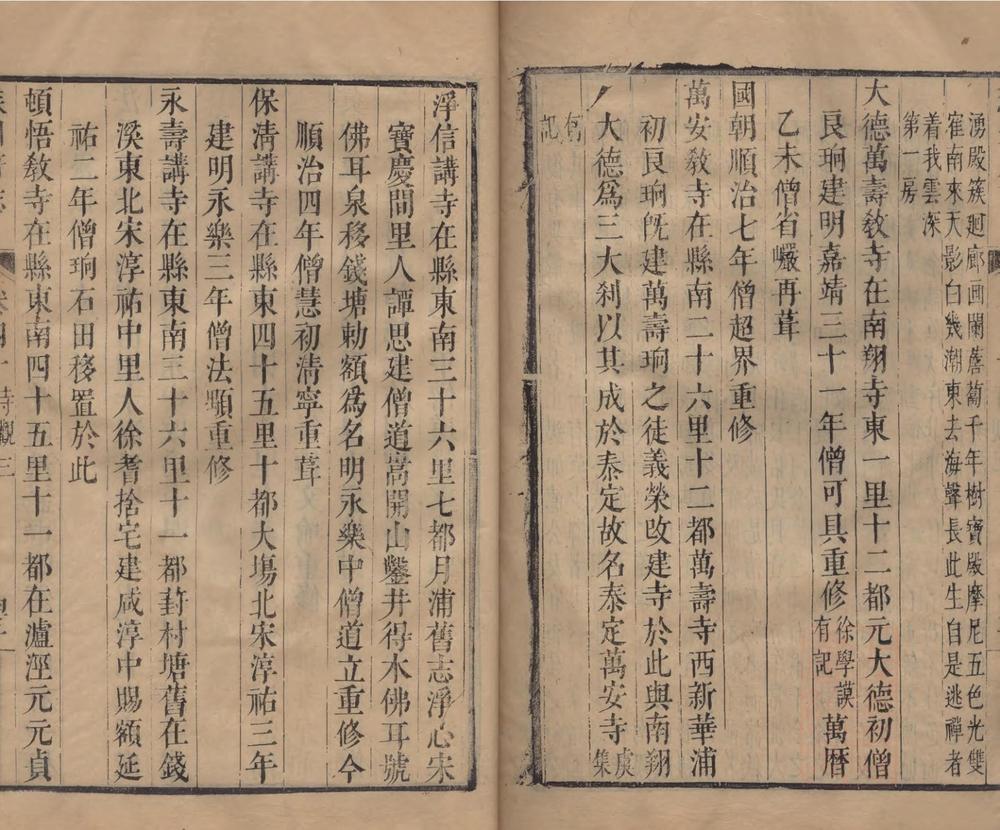 湧殿簇廻廊画闌薝蔔千年樹寶殿摩尼五色光雙
寉南來天影白幾潮東去海聲長此生自是逃禪者
着我雲深
第一房
大德萬壽教寺在南翔寺東一里十二都元大德初僧
良珦建明嘉靖三十一年僧可具重修徐學謨有記萬曆
乙未僧省巖再葺
國朝順治七年僧超界重修
萬安教寺在縣南二十六里十二都萬壽寺西新華浦
初良珦旣建萬壽珦之徒義榮改建寺於此與南翔
大德爲三大刹以其成於泰定故名泰定萬安寺虞集
有記
淨信講寺在縣東南三十六里七都月浦舊志淨心宋
寶慶間里人譚思建僧道嵩開山鑿井得水佛耳號
佛耳泉移錢塘勅額爲名明永樂中僧道立重修今
順治四年僧慧初清寧重葺
保淸講寺在縣東四十五里十都大塲北宋淳祐三年
建明永樂三年僧法顒重修
永壽講寺在縣東南三十六里十一都葑村塘舊在錢
溪東北宋淳祐中里人徐耆捨宅建咸淳中賜額延
祐二年僧珦石田移置於此
頓悟教寺在縣東南四十五里十一都在瀘涇元元貞
卷四 寺觀 三